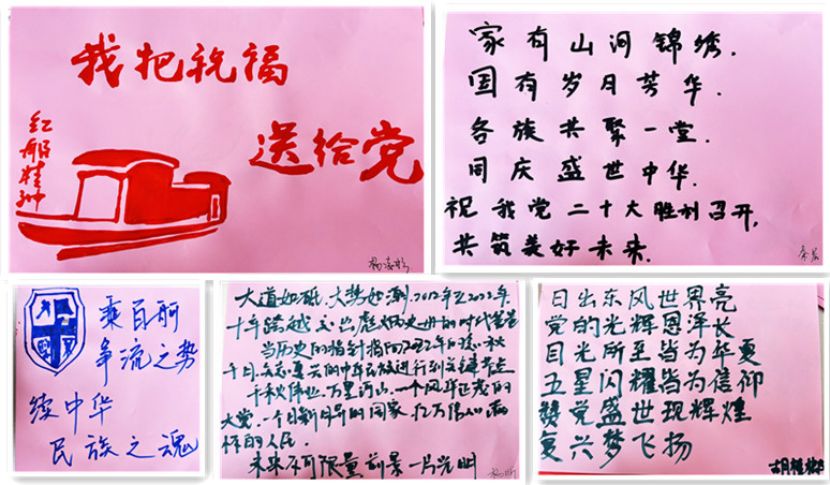 我把祝福
送给党
红船精神
家有山河锦绣.
国有岁月芳华.
各族共聚一堂.
同庆盛世中华.
祝我党二十大胜利召开,
共筑美好未来.
秦
乘百舸
争流之势
续中华
民族之魂
大道如砥,大势如潮.2012年至2022年.
十年跨越 的时代答卷
当历史的指针指向2022年的这一秋
的中华民族进行到关键节点
千秋伟业.万里河山.一个风华正茂的
大党.一个日新月异的国家.亿万
的人民.
未来不可限量前景一片光明
杨
日出东风世界亮
党的光辉恩泽长
目光所至皆为华夏
五星闪耀皆为信仰
赞党盛世现辉煌
复兴梦飞扬
胡雅